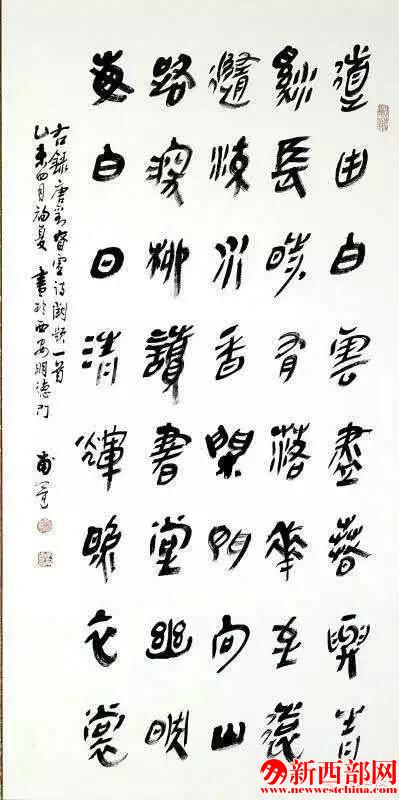 道由白雲盡春與青
谿長時有落花至遠
隨流水香閑門向山
路深柳讀書堂幽映
每白日清輝照衣裳
右錄唐劉昚虛詩闕題一首
乙未四月初夏書於西安明德門
新西部网
www.newwestchina.com